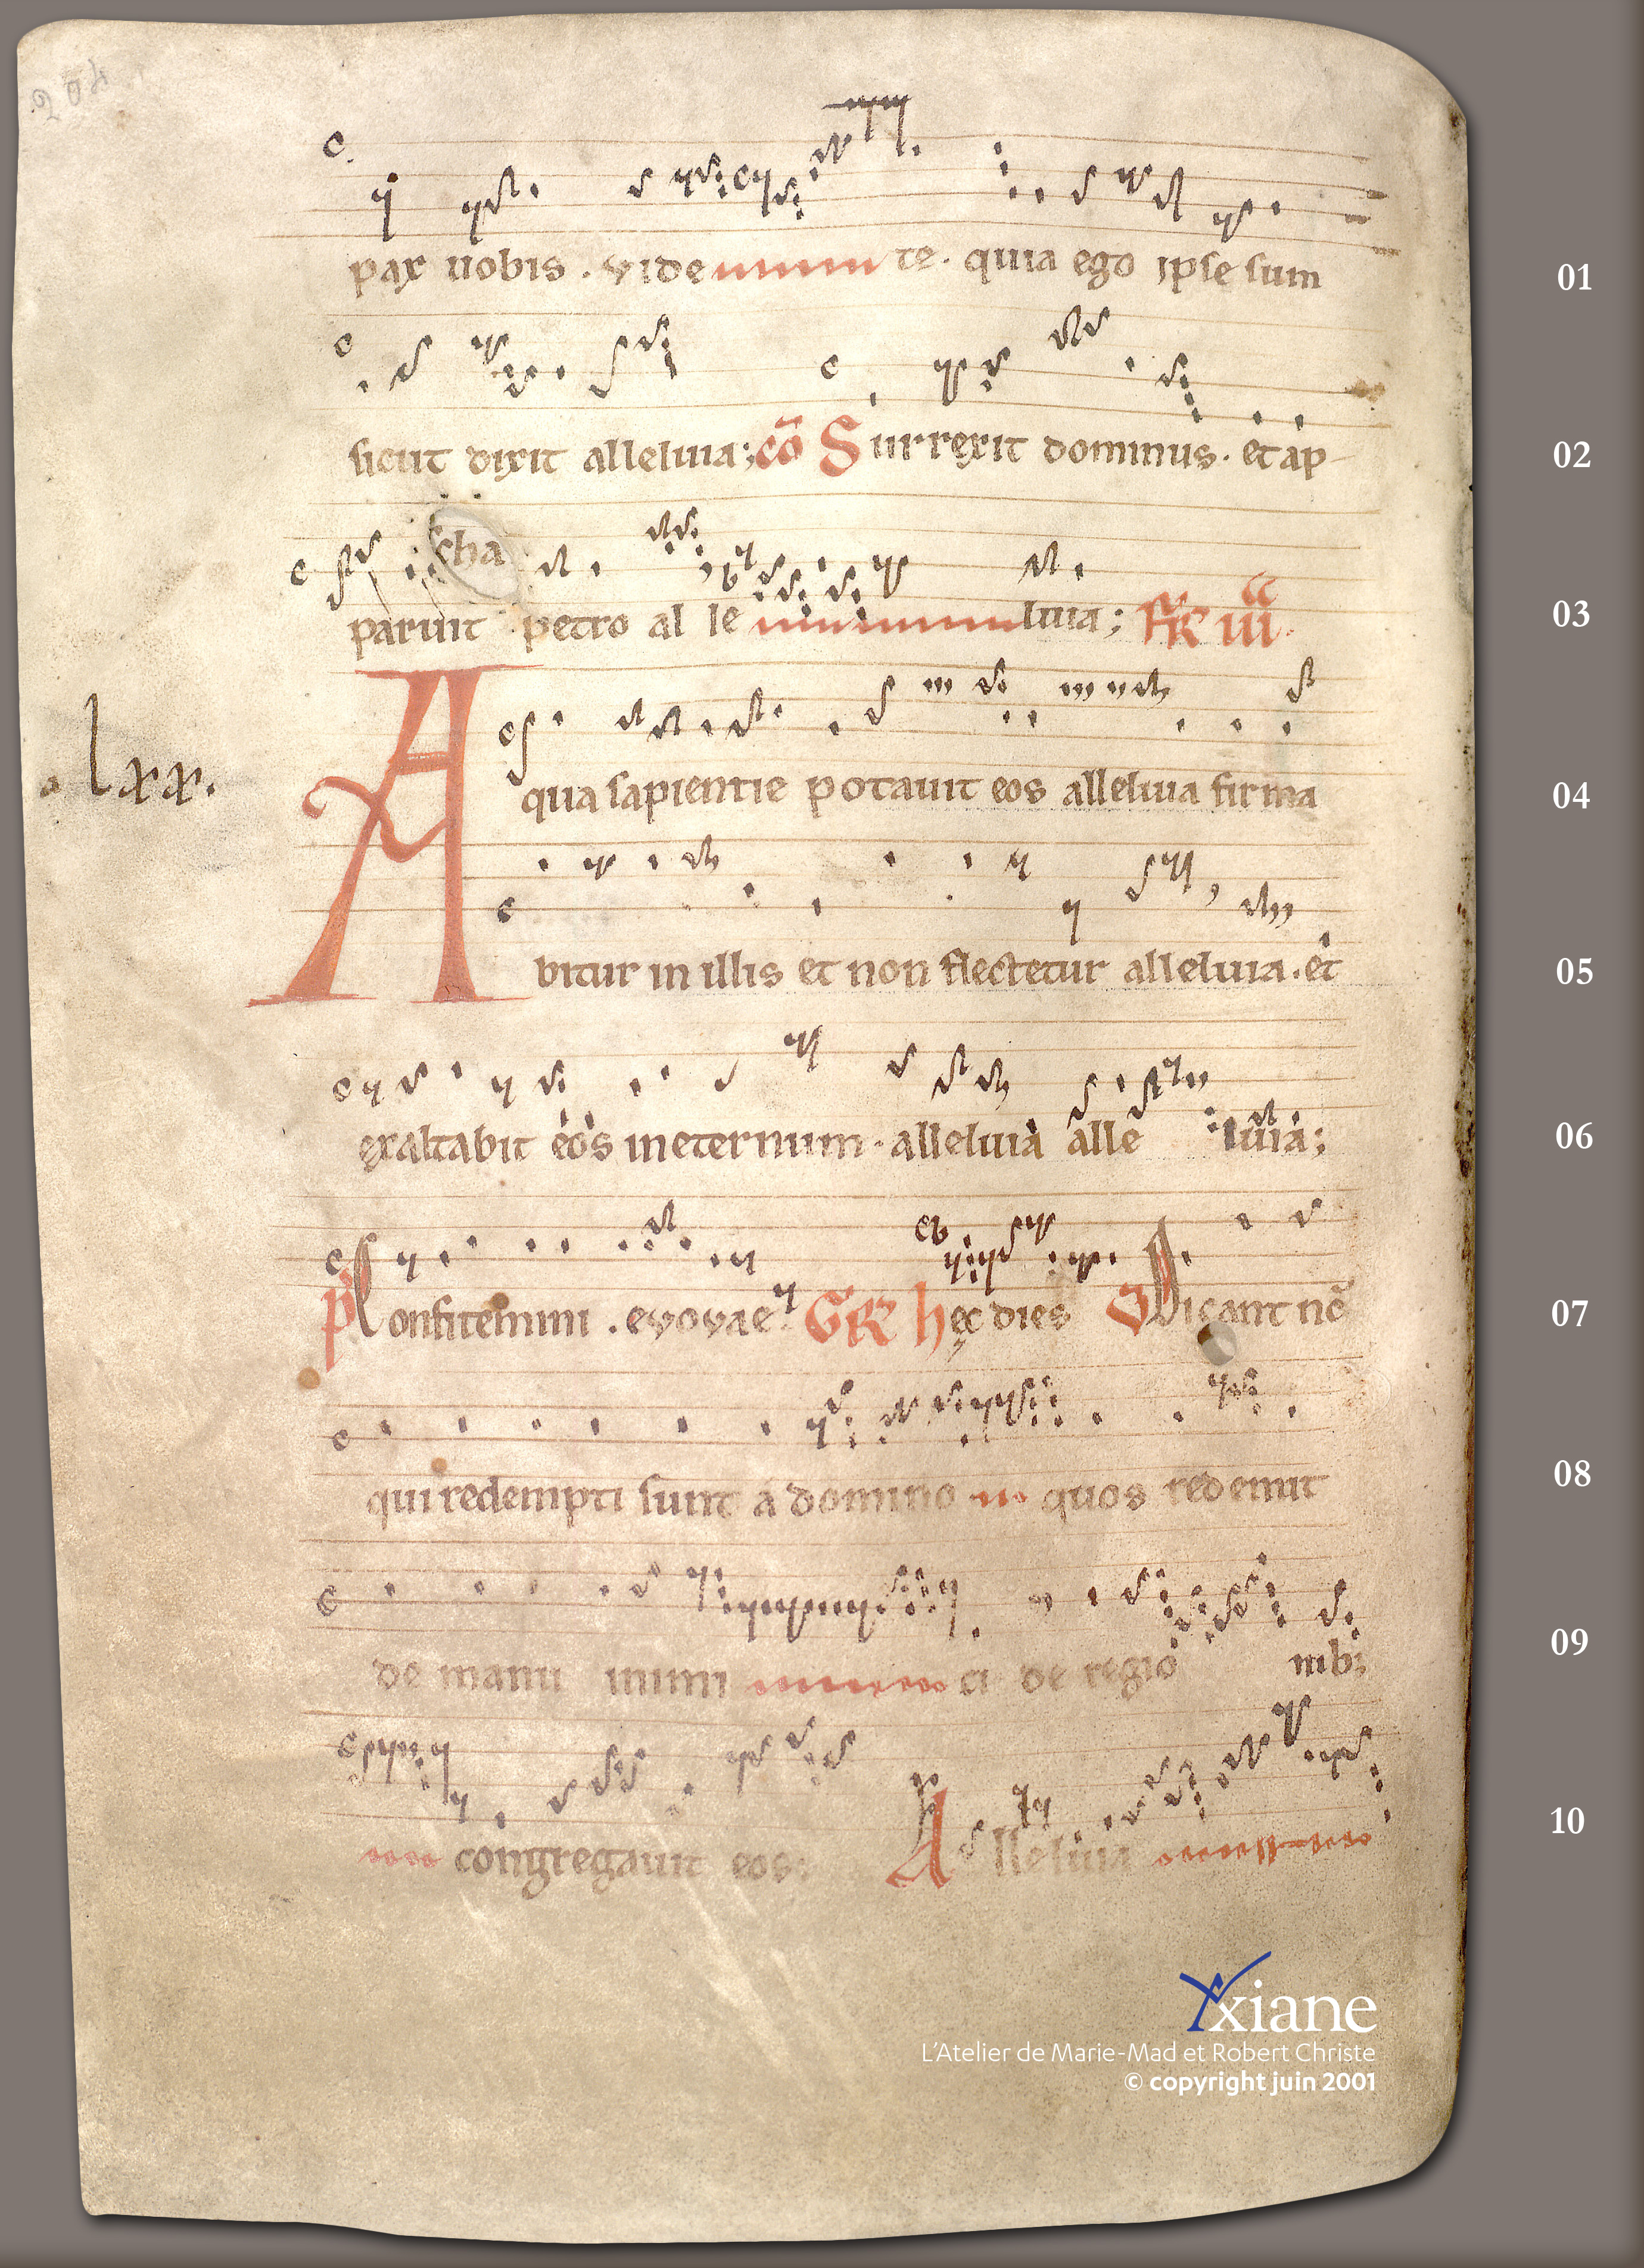 204
pax uobis . videte . quia ego ipse sum 01
sicut dixit alleluia; cō Surrexit dominus . et ap- 02
cha
paruit petro al le luia; FR iii. 03
Aqua sapientie potauit eos alleluia firma 04
lxx.
bitur in illis et non flectetur alleluia . et 05
exaltabit eos in eternum . alleluia alle luia; 06
p Confitemini . evovae GR hęc dies V Dicant nc̄ 07
qui redempti sunt a domino quos redemit 08
de manu inimi ci de regio nib; 09
congregauit eos; Alleluia 10
xiane
L'Atelier de Marie-Mad et Robert Christe
© copyright juin 2001